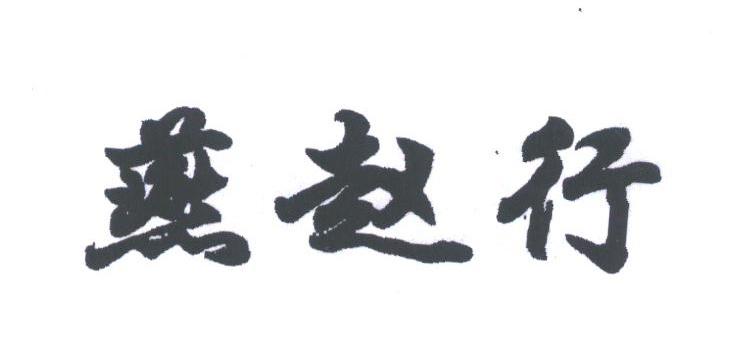 燕赵行